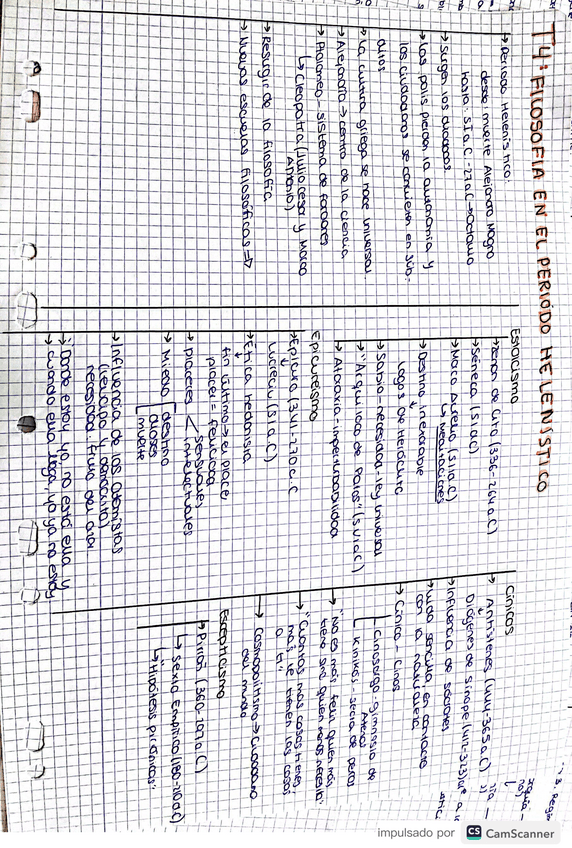 T4: FILOSOFÍA EN EL PERIODO HELENÍSTICO
→ Periodo Helenístico:
desde muerte Alejandro Magno
hasta: S.I a.C - 27 a.C → Octavio
→ Surgen los
→ Las polis pierden la autonomía y
los ciudadanos se convierten en súb-
ditos
→ La cultura griega se hace universal
→ Alejandría → centro de la ciencia
→ Ptolomeo - sistema de faraones
↳ Cleopatra (Julio César y Marco
Antonio)
→ Resurgir de la filosofía
→ Nuevas escuelas filosóficas ⇒
Estoicismo
→ Zenón de Citio (336-264 a.C)
→ Séneca (S I a.C)
→ Marco Aurelio (S II a.C)
↳ Meditaciones
→ Destino inexorable
Logos de Heráclito
→ Sabio - necesidad - ley universal
→ "Arquíloco de Paros" (S VII a.C)
→ Ataraxia - imperturbabilidad
Epicureísmo
→ Epicuro (341-270 a.C
Lucrecio (S I a.C)
→ Ética hedonista
fin último → el placer
placer = felicidad
→ placeres < sensibles
intelectuales
→ Miedo [ destino
dioses
muerte
→ Influencia de los atomistas
(leucipo y demócrito)
necesidad: fruto del azar
→ "Donde estoy yo, no está ella y
→ cuando ella llega, yo ya no estoy
Cínicos
→ Antístenes (444-365 a.C)
Diógenes de Sinope (412-323)
→ Influencia de Sócrates
→ Vida sencilla en contacto
con la naturaleza
→ Cínico - Cinos
Cinosargo: gimnasio de
Atenas
Kinikos - secta de perros
→ "No es más feliz quien más
tiene sino quien menos necesita"
→ "Cuantas más cosas tienes
más te tienen las cosas
a ti"
→ Cosmopolitismo → ciudadano
del mundo
Escepticismo
→ Pirrón (360-272 a.C)
↳ Sexto Empírico (180-210 a.C)
↳ "Hipótesis pirrónicas"
impulsado por CS CamScanner